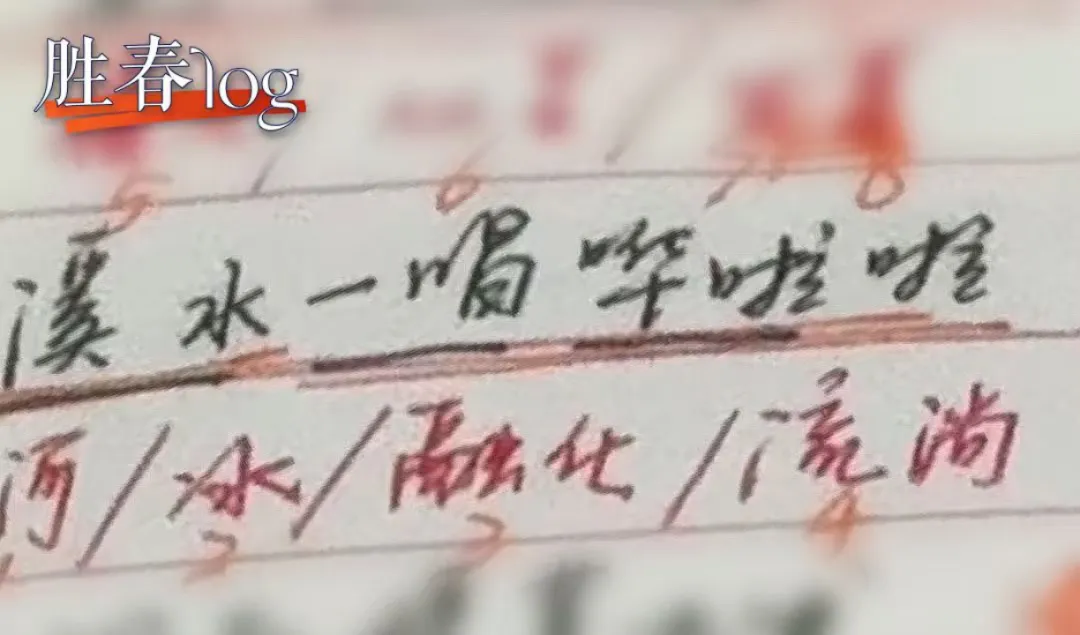 胜春log
5 6 7 8
溪水一喝哗啦啦
河/冰/融化/流淌
2 3 4